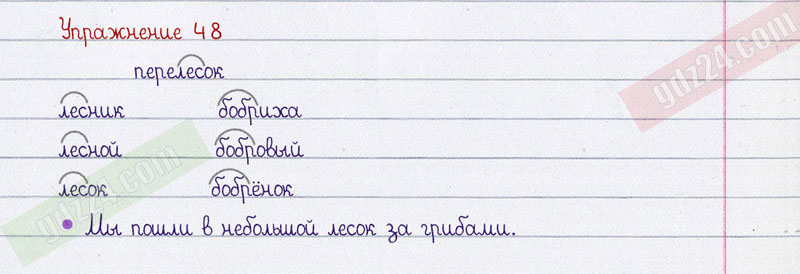 Упражнение 48
перелесок
лесник бобриха
лесной бобровый
лесок бобрёнок
• Мы пошли в небольшой лесок за грибами.
gdz24.com
gdz24.com